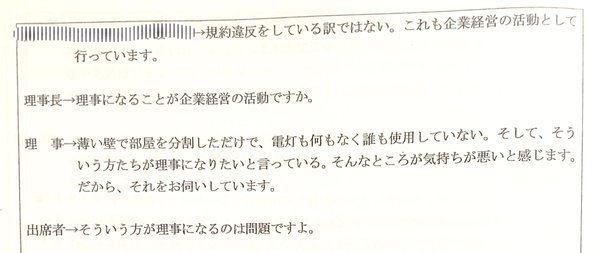 →規約違反をしている訳ではない。これも企業経営の活動として
行っています。
理事長→理事になることが企業経営の活動ですか。
理　事→薄い壁で部屋を分割しただけで、電灯も何もなく誰も使用していない。そして、そう
いう方たちが理事になりたいと言っている。そんなところが気持ちが悪いと感じます。
だから、それをお伺いしています。
出席者→そういう方が理事になるのは問題ですよ。